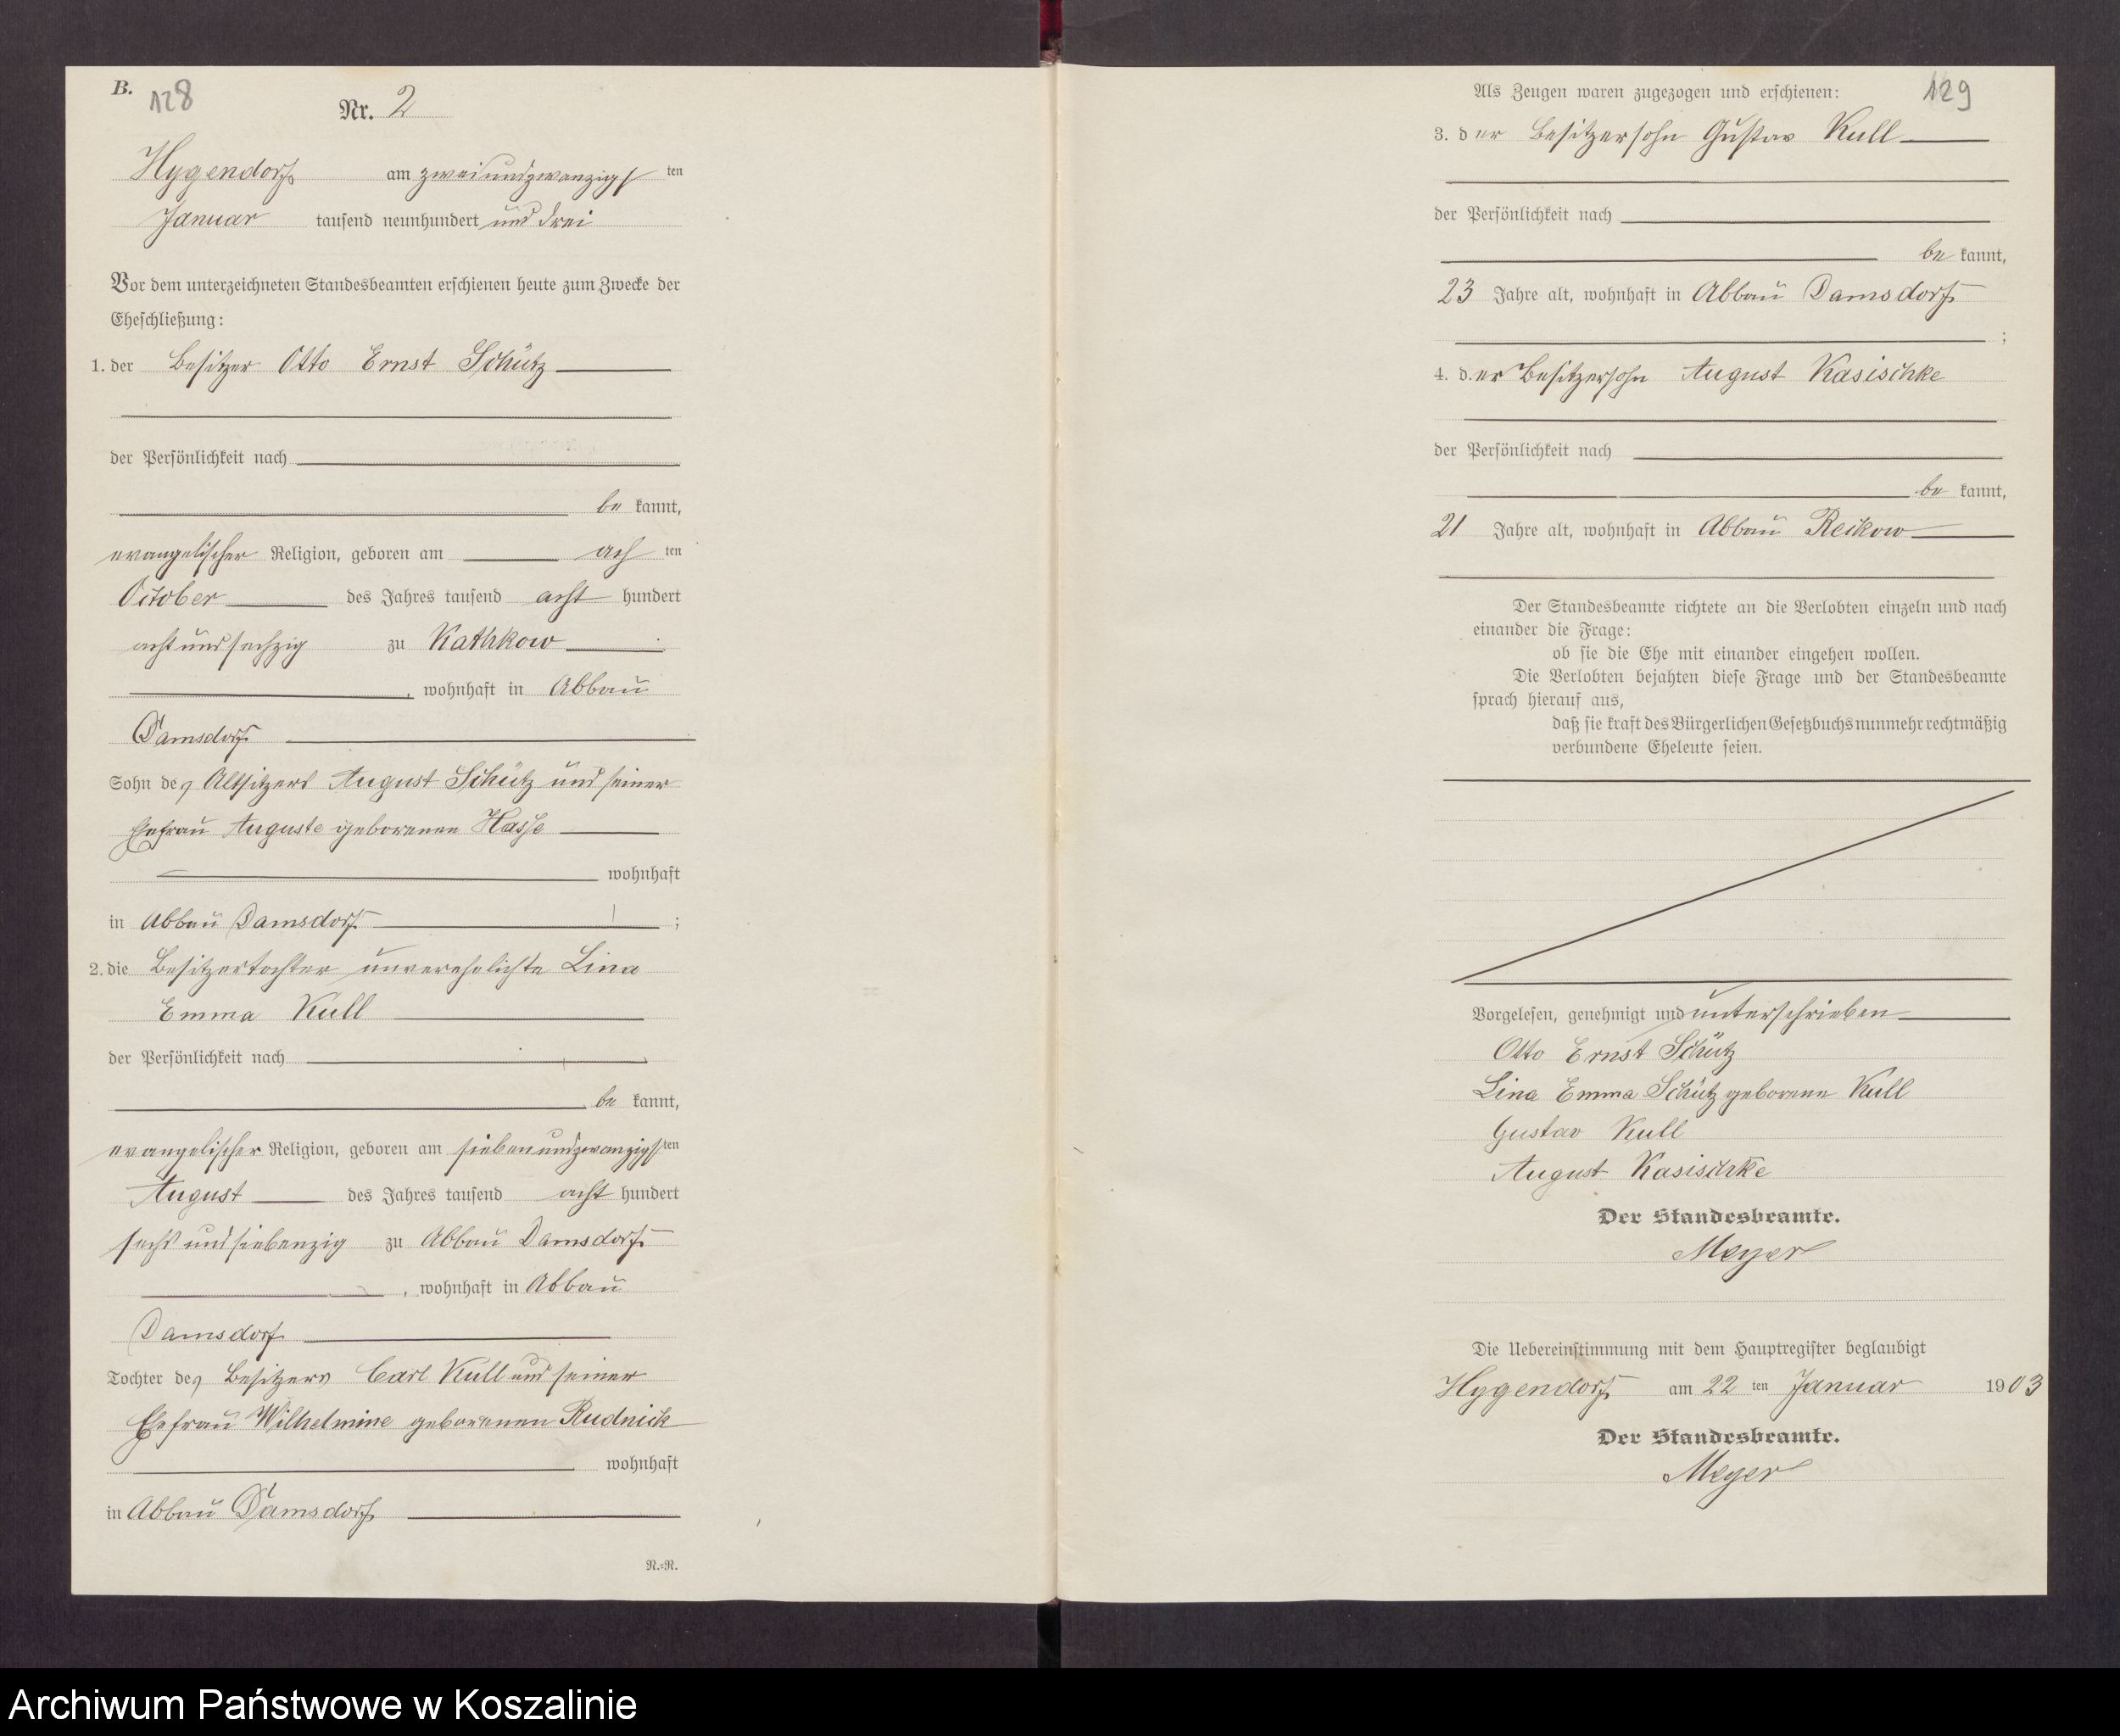 B.
128
Nr. 2
Hygendorf am zweiundzwanzigsten
Januar tausend neunhundert und drei
Vor dem unterzeichneten Standesbeamten erschienen heute zum Zwecke der
Eheschließung:
1. der Besitzer Otto Ernst Schütz
der Persönlichkeit nach
be kannt,
evangelischer Religion, geboren am ach ten
October des Jahres tausend acht hundert
achtundsechzig zu Kathkow
, wohnhaft in Abbau
Damsdorf
Sohn des Altsitzers August Schütz und seiner
Ehefrau Auguste geborenen Hasse
wohnhaft
in Abbau Damsdorf ;
2. die Besitzertochter unverehelichte Lina
Emma Kull
der Persönlichkeit nach
be kannt,
evangelischer Religion, geboren am siebenundzwanzigsten
August des Jahres tausend acht hundert
sechsundsiebenzig zu Abbau Damsdorf
, wohnhaft in Abbau
Damsdorf
Tochter des Besitzers Carl Kull und seiner
Ehefrau Wilhelmine geborenen Rudnick
wohnhaft
in Abbau Damsdorf
N.=R.
129
Als Zeugen waren zugezogen und erschienen:
3. der Besitzersohn Gustav Kull
der Persönlichkeit nach
be kannt,
23 Jahre alt, wohnhaft in Abbau Damsdorf
;
4. der Besitzersohn August Kasischke
der Persönlichkeit nach
be kannt,
21 Jahre alt, wohnhaft in Abbau Reikow
Der Standesbeamte richtete an die Verlobten einzeln und nach
einander die Frage:
ob sie die Ehe mit einander eingehen wollen.
Die Verlobten bejahten diese Frage und der Standesbeamte
sprach hierauf aus,
daß sie kraft des Bürgerlichen Gesetzbuchs nunmehr rechtmäßig
verbundene Eheleute seien.
Vorgelesen, genehmigt und unterschrieben
Otto Ernst Schütz
Lina Emma Schütz geborene Kull
Gustav Kull
August Kasischke
Der Standesbeamte.
Meyer
Die Uebereinstimmung mit dem Hauptregister beglaubigt
Hygendorf am 22 ten Januar 1903
Der Standesbeamte.
Meyer
Archiwum Państwowe w Koszalinie